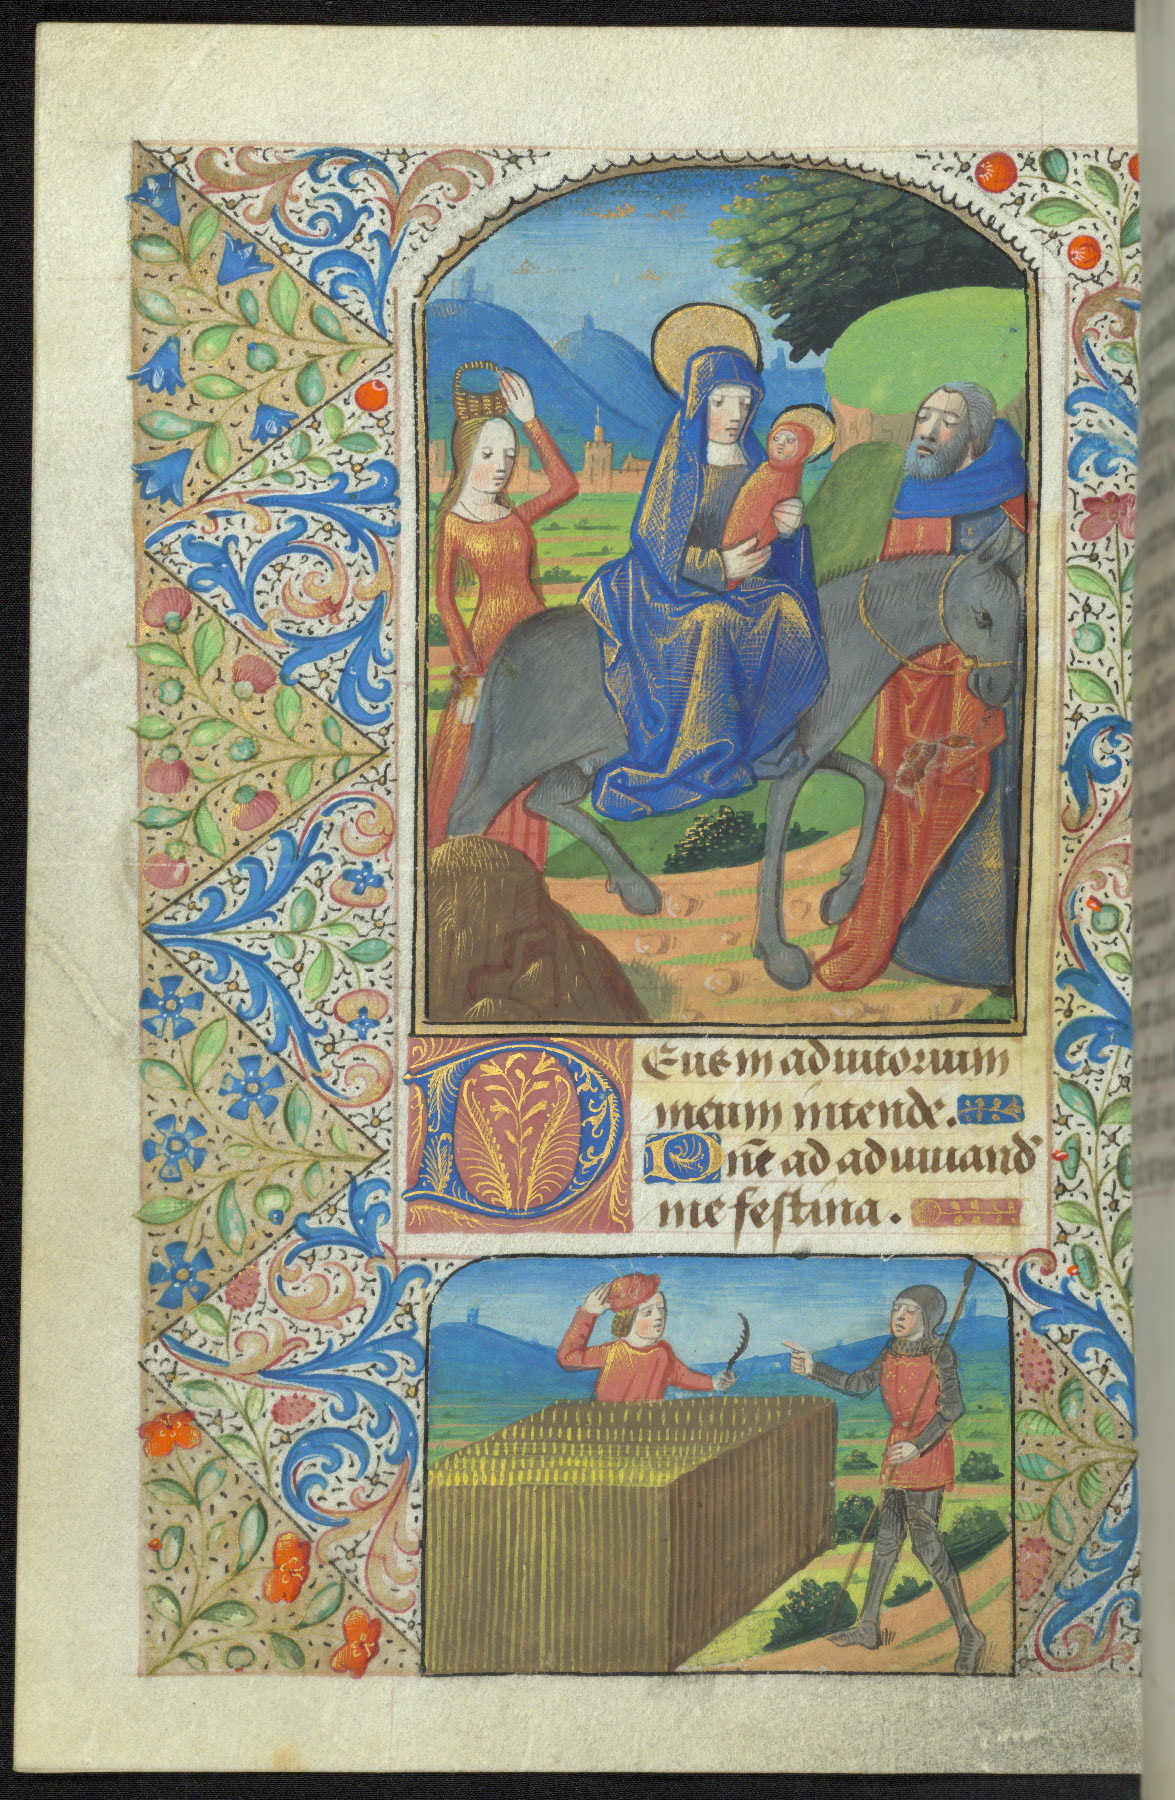 Deus in adiutorium
meum intende.
Dn̄e ad adiuuand'
me festina.